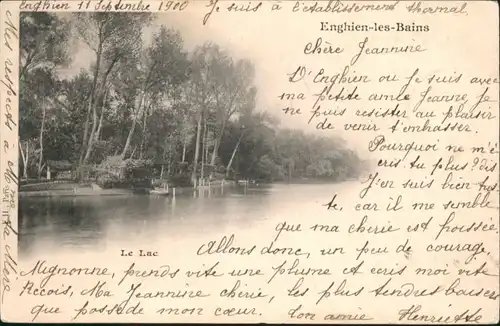 Enghien 11 Septembre 1900
Je suis à l'établissement thermal.
Enghien-les-Bains
Chère Jeannine
D'Enghien ou je suis avec
ma petite amie Jeanne, je
ne puis resister au plaisir
de venir t'enbasser.
Pourquoi ne m'é
cris tu plus? Dis
J'en suis bien tris
te, car il me semble
que ma cherie est froissée.
Allons donc, un peu de courage,
Mignonne, prends vite une plume et ecris moi vite
Recois, Ma Jeannine chérie, les plus tendres baisers
que possede mon cœur. ton amie Henriette
Le Lac
Mes respects à ta Mère